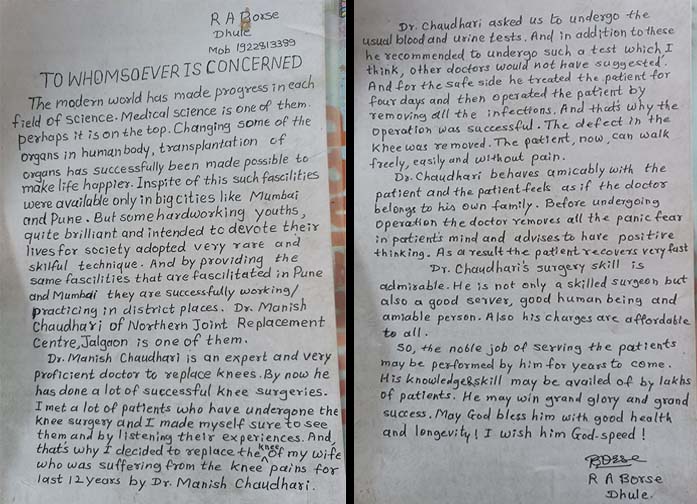 R A Borse
Dhule
Mob 1922813399
TO WHOMSOEVER IS CONCERNED
The modern world has made progress in each
field of science. Medical science is one of them.
perhaps it is on the top. Changing some of the
organs in human body, transplantation of
organs has successfully been made possible to
make life happier. Inspite of this such fascilities
were available only in big cities like Mumbai
and Pune. But some hardworking youths,
quite brilliant and intended to devote their
lives for society adopted very rare and
skilful technique. And by providing the
same fascilities that are fascilitated in Pune
and Mumbai they are successfully working/
practicing in district places. Dr. Manish
Chaudhari of Northern Joint Replacement
Centre, Jalgaon is one of them.
Dr. Manish Chaudhari is an expert and very
proficient doctor to replace knees. By now he
has done a lot of successful knee surgeries.
I met a lot of patients who have undergone the
knee surgery and I made myself sure to see
them and by listening their experiences. And,
that's why I decided to replace the knee of my wife
who was suffering from the knee pains for
last 12 years by Dr. Manish Chaudhari.
Dr. Chaudhari asked us to undergo the
usual blood and urine tests. And in addition to these
he recommended to undergo such a test which I
think, other doctors would not have suggested.
And for the safe side he treated the patient for
four days and then operated the patient by
removing all the infections. And that's why the
operation was successful. The defect in the
knee was removed. The patient, now, can walk
freely, easily and without pain.
Dr. Chaudhari behaves amicably with the
patient and the patient feels as if the doctor
belongs to his own family. Before undergoing
operation the doctor removes all the panic fear
in patient's mind and advises to have positive
thinking. As a result the patient recovers very fast
Dr. Chaudhari's surgery skill is
admirable. He is not only a skilled surgeon but
also a good server, good human being and
amiable person. Also his charges are affordable
to all.
So, the noble job of serving the patients
may be performed by him for years to come.
His knowledge & skill may be availed of by lakhs
of patients. He may win grand glory and grand
success. May God bless him with good health
and longevity! I wish him God-speed!
RBorse
R A Borse
Dhule